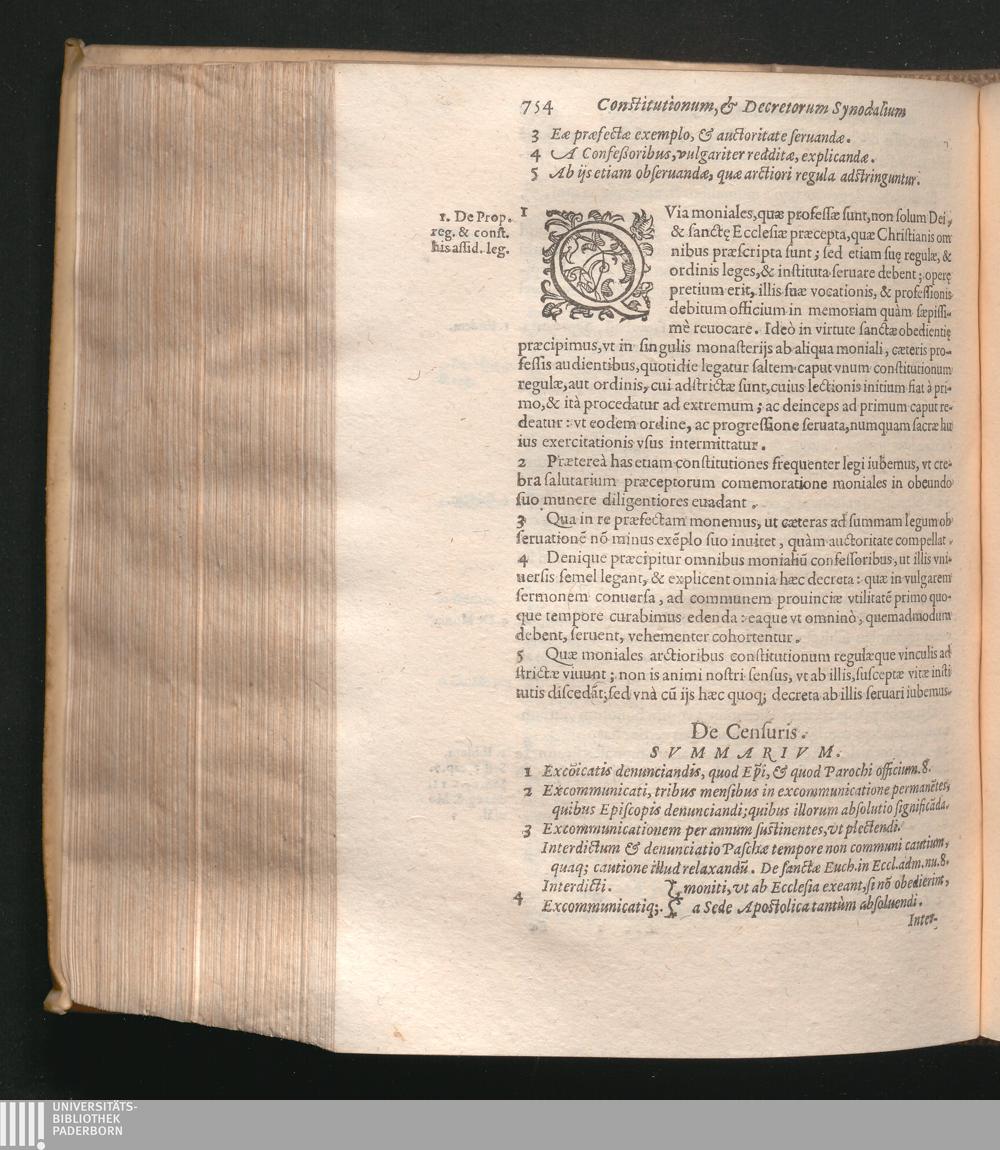 754 Constitutionum, & Decretorum Synodalium
3 Eæ præfectæ exemplo, & auctoritate seruandæ.
4 A Confeßoribus, vulgariter redditæ, explicandæ.
5 Ab ijs etiam obseruandæ, quæ arctiori regula adstringuntur.
1. De Prop.
reg. & const.
his assid. leg.
1 QVia moniales, quæ professæ sunt, non solum Dei,
& sanctę Ecclesiæ præcepta, quæ Christianis om
nibus præscripta sunt; sed etiam suę regulæ, &
ordinis leges, & instituta seruare debent; operę
pretium erit, illis suæ vocationis, & professionis
debitum officium in memoriam quàm sæpissi-
mè reuocare. Ideò in virtute sanctæ obedientię
præcipimus, vt in singulis monasterijs ab aliqua moniali, cæteris pro-
fessis audientibus, quotidie legatur saltem caput vnum constitutionum
regulæ, aut ordinis, cui adstrictæ sunt, cuius lectionis initium fiat à pri-
mo, & ità procedatur ad extremum; ac deinceps ad primum caput re-
deatur: vt eodem ordine, ac progressione seruata, numquam sacræ hu
ius exercitationis vsus intermittatur.
2 Prætereà has etiam constitutiones frequenter legi iubemus, vt cre-
bra salutarium præceptorum comemoratione moniales in obeundo
suo munere diligentiores euadant.
3 Qua in re præfectam monemus, ut cæteras ad summam legum ob
seruationē nō minus exēplo suo inuitet, quàm auctoritate compellat.
4 Denique præcipitur omnibus monialiū confessoribus, ut illis vni-
uersis semel legant, & explicent omnia hæc decreta: quæ in vulgarem
sermonem conuersa, ad communem prouinciæ vtilitatē primo quo-
que tempore curabimus edenda: eaque vt omninò, quemadmodum
debent, seruent, vehementer cohortentur.
5 Quæ moniales arctioribus constitutionum regulæque vinculis ad
strictæ viuunt; non is animi nostri sensus, vt ab illis, susceptæ vitæ insti
tutis discedāt; sed vnà cū ijs hæc quoq; decreta ab illis seruari iubemus.
De Censuris.
SVMMARIVM.
1 Excōicatis denunciandis, quod Ep̃i, & quod Parochi officium. 8.
2 Excommunicati, tribus mensibus in excommunicatione permanētes,
quibus Episcopis denunciandi; quibus illorum absolutio significāda.
3 Excommunicationem per annum sustinentes, vt plectendi.
Interdictum & denunciatio Paschæ tempore non communicantium,
quaq; cautione illud relaxandū. De sanctæ Euch. in Eccl. adm. nu. 8.
4 Interdicti. moniti, vt ab Ecclesia exeant, si nō obedierint,
Excommunicatiq;. a Sede Apostolica tantùm absoluendi.
Inter-
UNIVERSITÄTS-
BIBLIOTHEK
PADERBORN